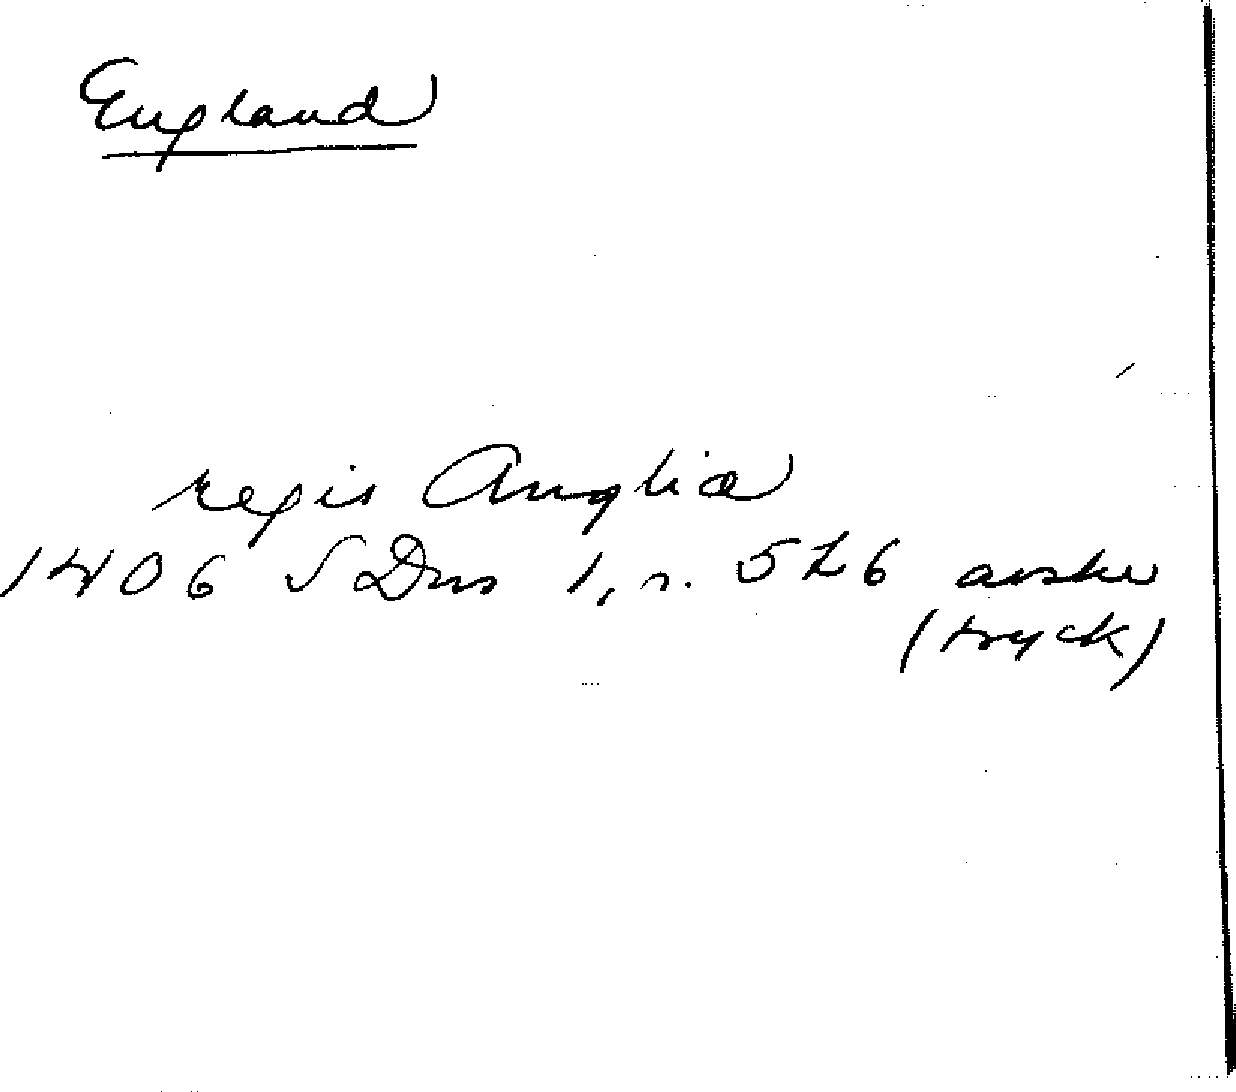 England
regis Angliæ
1406 SDns 1, s. 526 avskr
(tryck)